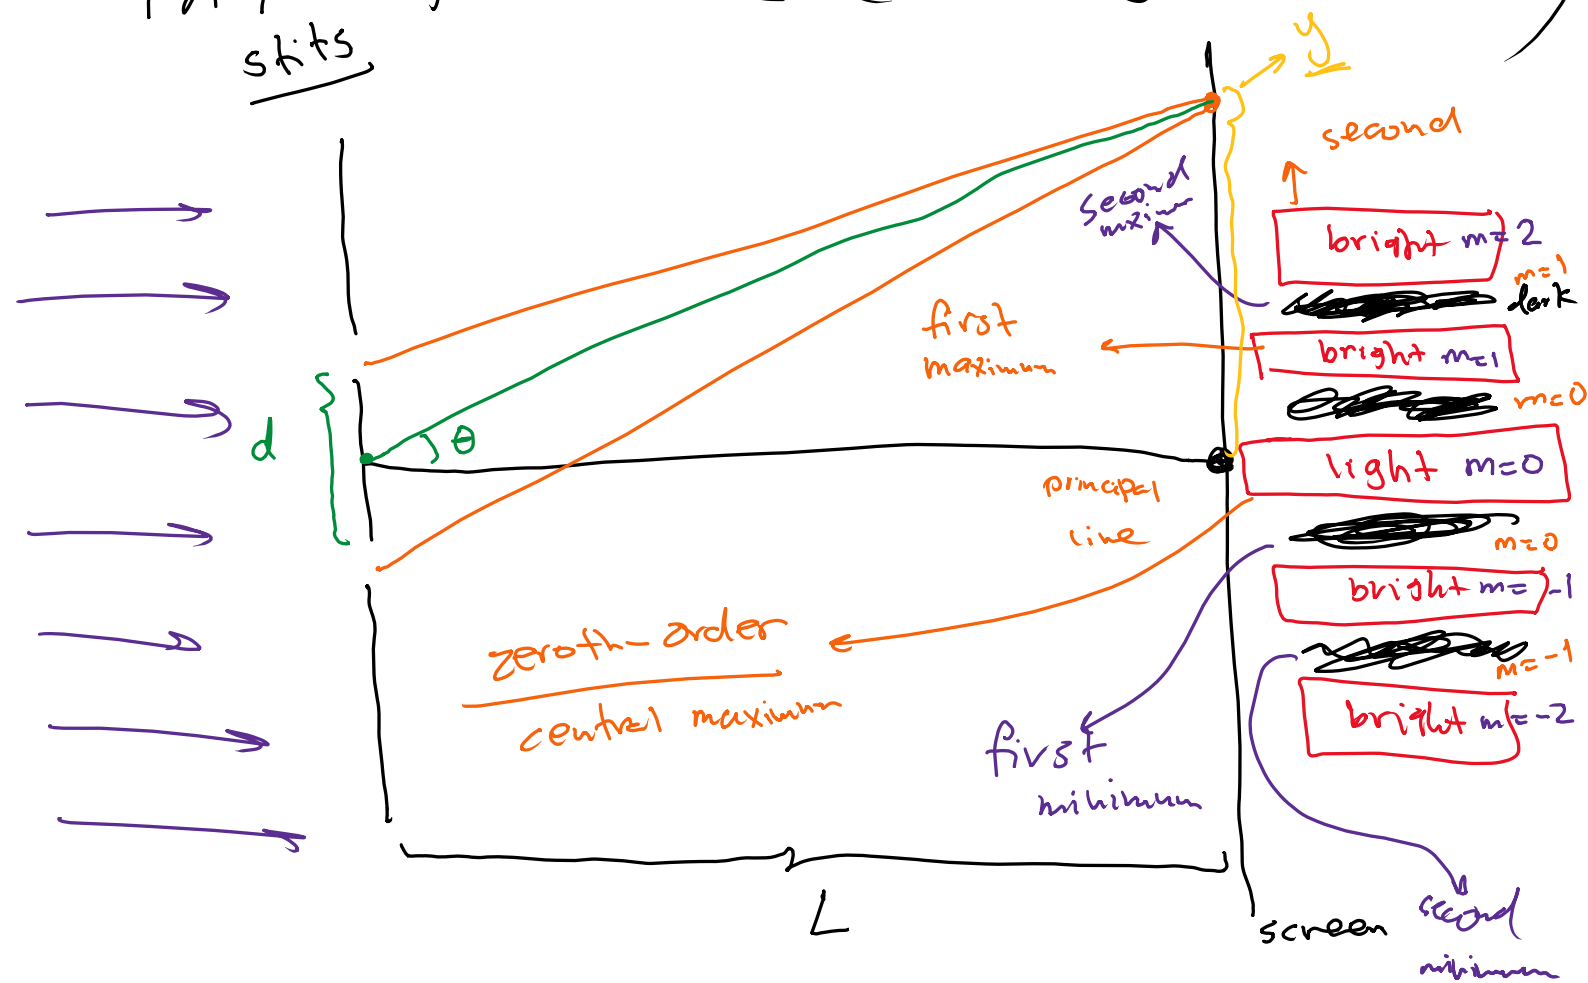 stits
y
second
second
mximum
bright m=2
m=1
dark
first
maximum
bright m=1
m=0
d
θ
light m=0
principal
line
m=0
bright m=-1
zeroth-order
central maximum
m=-1
bright m=-2
first
minimum
L
screen
second
minimum